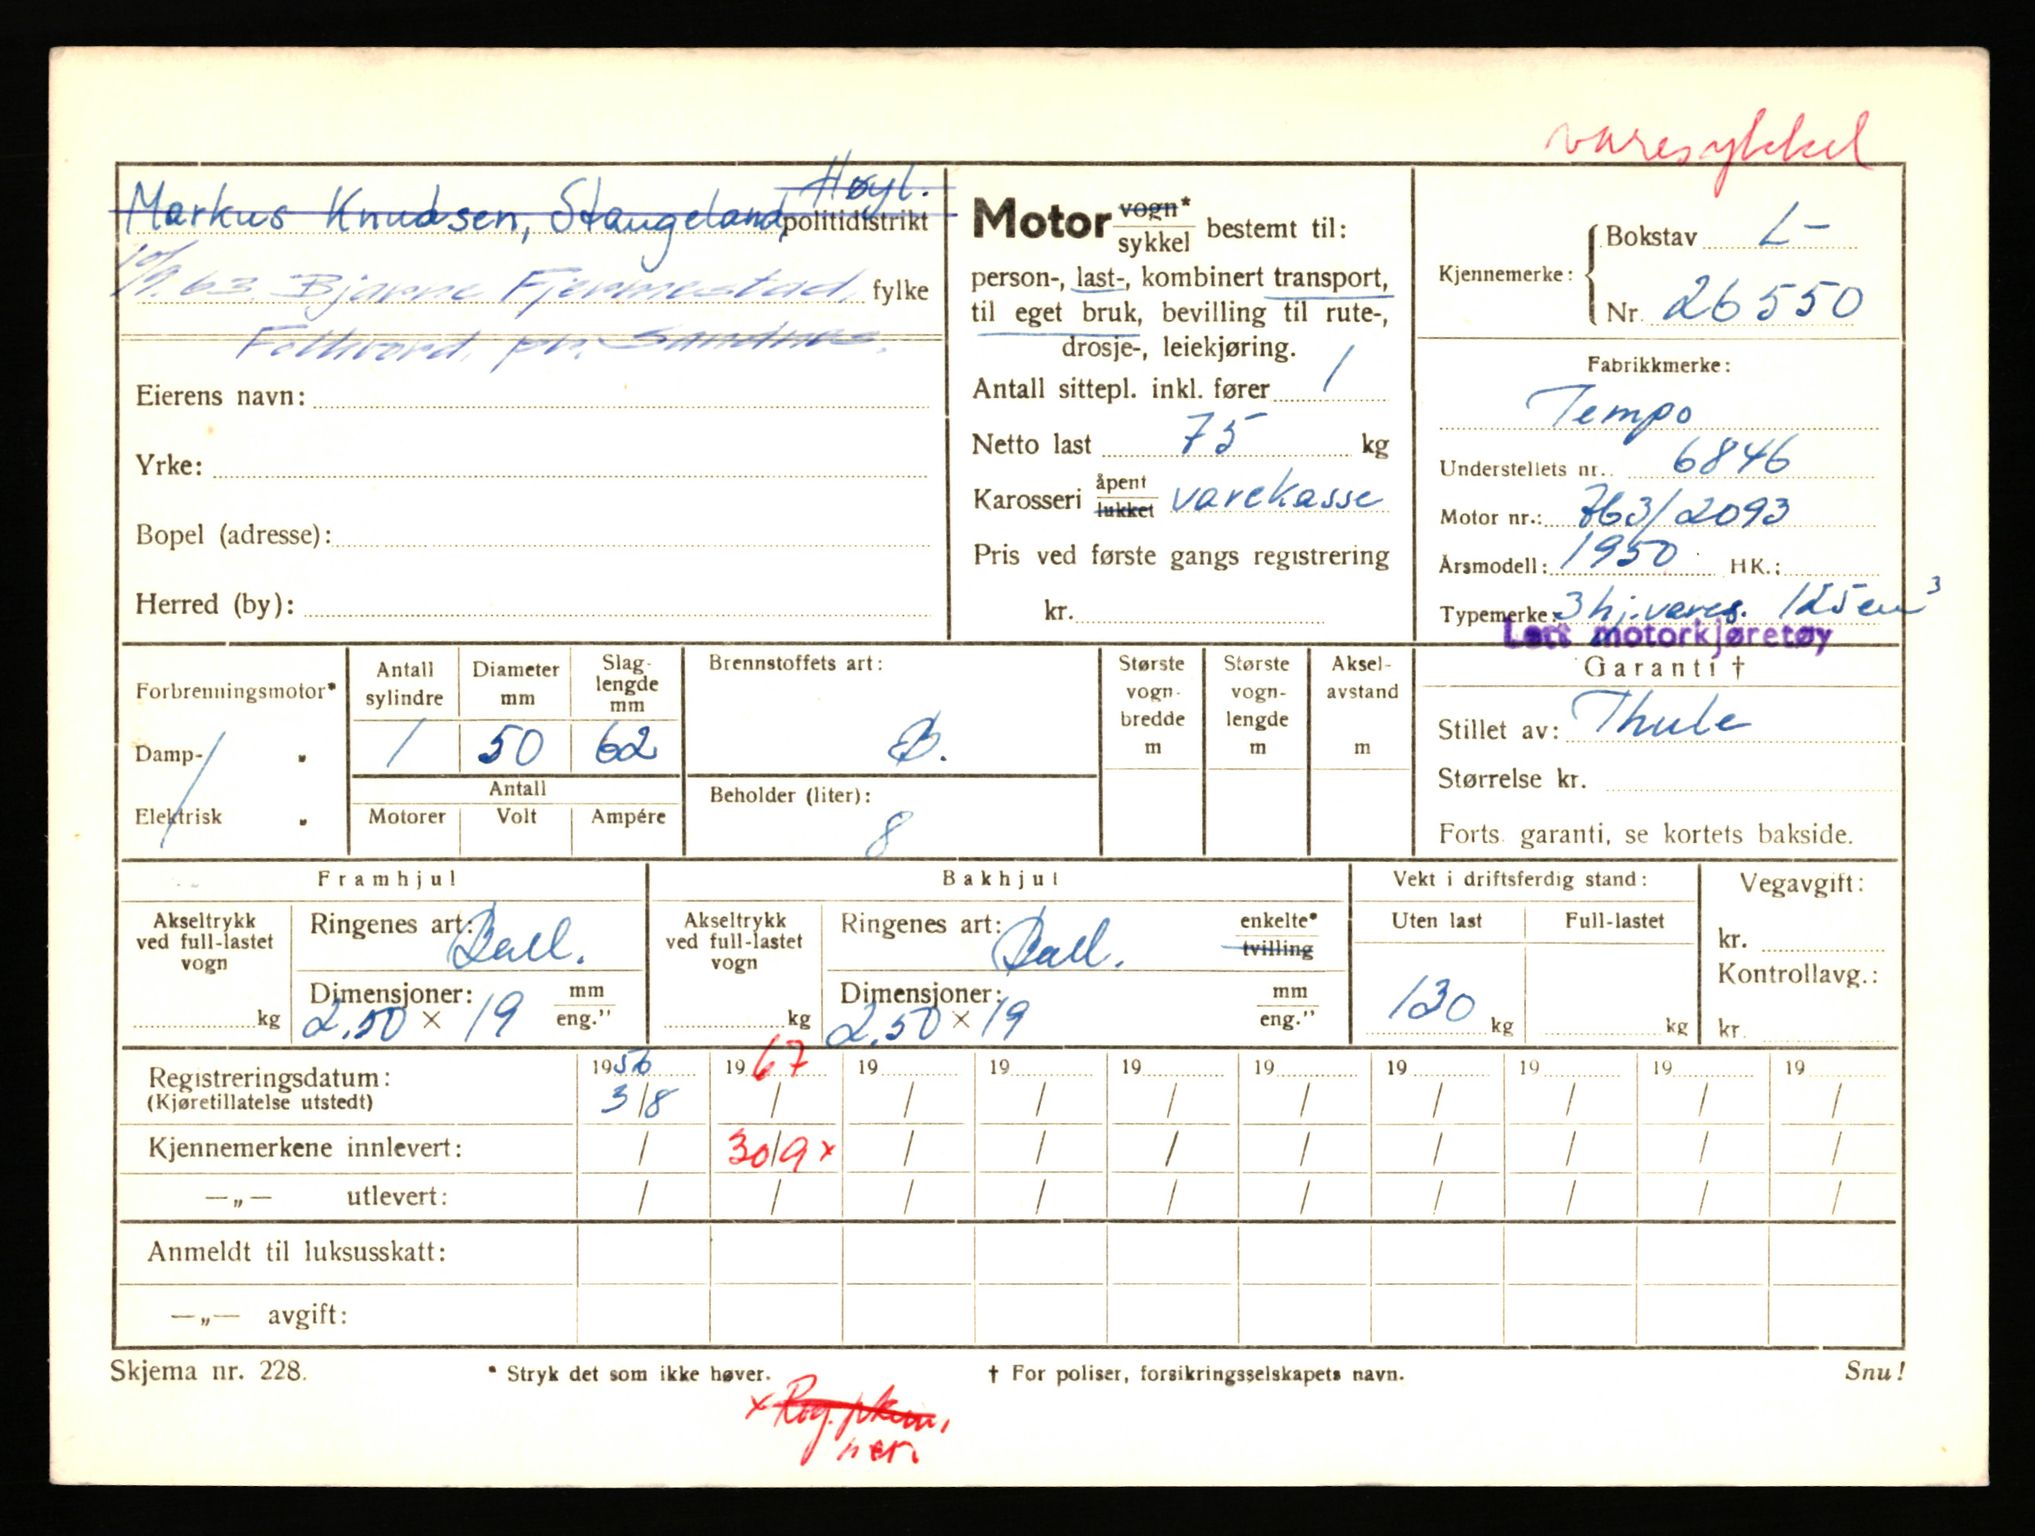 varesykkel
Markus Knudsen, Stangeland, Høyl.
politidistrikt
10/9.63. Bjarne Fjermestad,
fylke
Folkvord, pr. Sandnes.
Eierens navn:
Yrke:
Bopel (adresse):
Herred (by):
Motor vogn* sykkel bestemt til:
person-, last-, kombinert transport,
til eget bruk, bevilling til rute-,
drosje-, leiekjøring.
Antall sittepl. inkl. fører 1
Netto last 75 kg
Karosseri åpent lukket varekasse
Pris ved første gangs registrering
kr.
Kjennemerke: Bokstav L-
Nr. 26550
Fabrikkmerke:
Tempo
Understellets nr. 6846
Motor nr.: 763/2093
Årsmodell: 1950 HK.:
Typemerke: 3 hj. vares. 125 cm³
Lett motorkjøretøy
Forbrenningsmotor*
Damp- "
Elektrisk "
Antall sylindre
Diameter mm
Slag-lengde mm
1 50 62
Antall
Motorer Volt Ampére
Brennstoffets art:
B.
Beholder (liter):
8
Største vogn-bredde m
Største vogn-lengde m
Aksel-avstand m
Garanti †
Stillet av: Thule
Størrelse kr.
Forts. garanti, se kortets bakside.
Framhjul
Akseltrykk ved full-lastet vogn
kg
Ringenes art: Ball.
Dimensjoner: mm
2.50 × 19 eng."
Bakhjul
Akseltrykk ved full-lastet vogn
kg
Ringenes art: Ball. enkelte* tvilling
Dimensjoner: mm
2.50 × 19 eng."
Vekt i driftsferdig stand:
Uten last Full-lastet
130 kg kg
Vegavgift:
kr.
Kontrollavg.:
kr.
Registreringsdatum: 1956 1967 19 19 19 19 19 19 19 19
(Kjøretillatelse utstedt) 3/8 / / / / / / / / /
Kjennemerkene innlevert: / 30/9 x / / / / / / / /
—„— utlevert: / / / / / / / / / /
Anmeldt til luksusskatt:
—„— avgift:
Skjema nr. 228. * Stryk det som ikke høver. † For poliser, forsikringsselskapets navn. Snu!
x Reg.